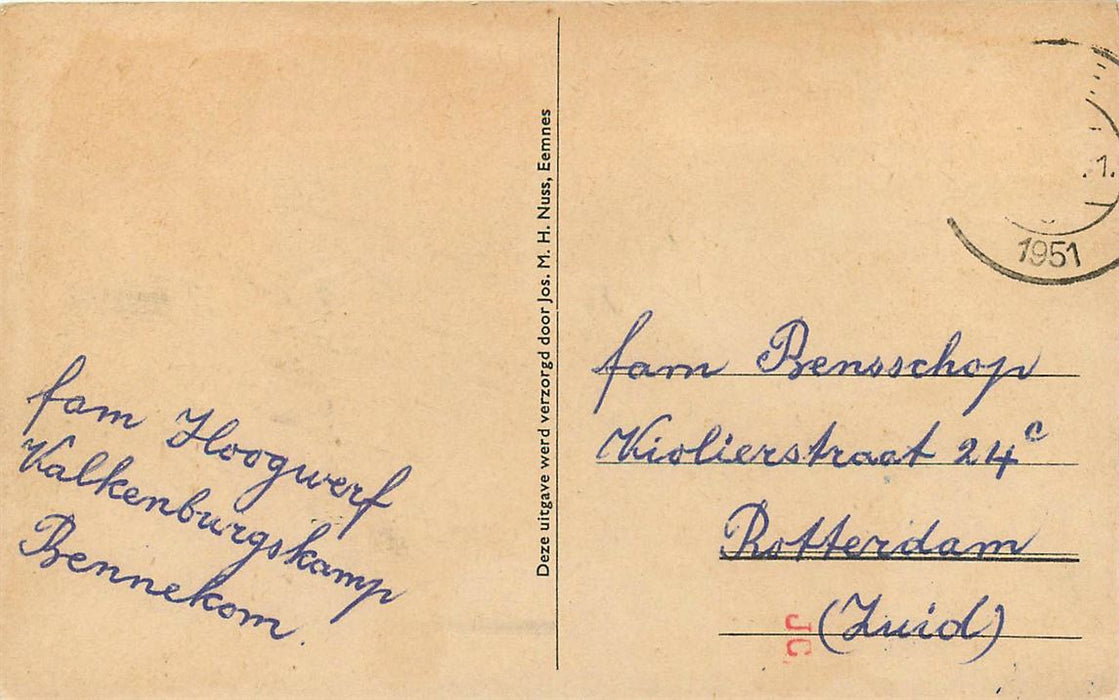 fam Hoogwerf
Valkenburgskamp
Bennekom.
Deze uitgave werd verzorgd door Jos. M. H. Nuss, Eemnes
1.
1951
fam Bensschop
Violierstraat 24c
Rotterdam
(Zuid)
JC